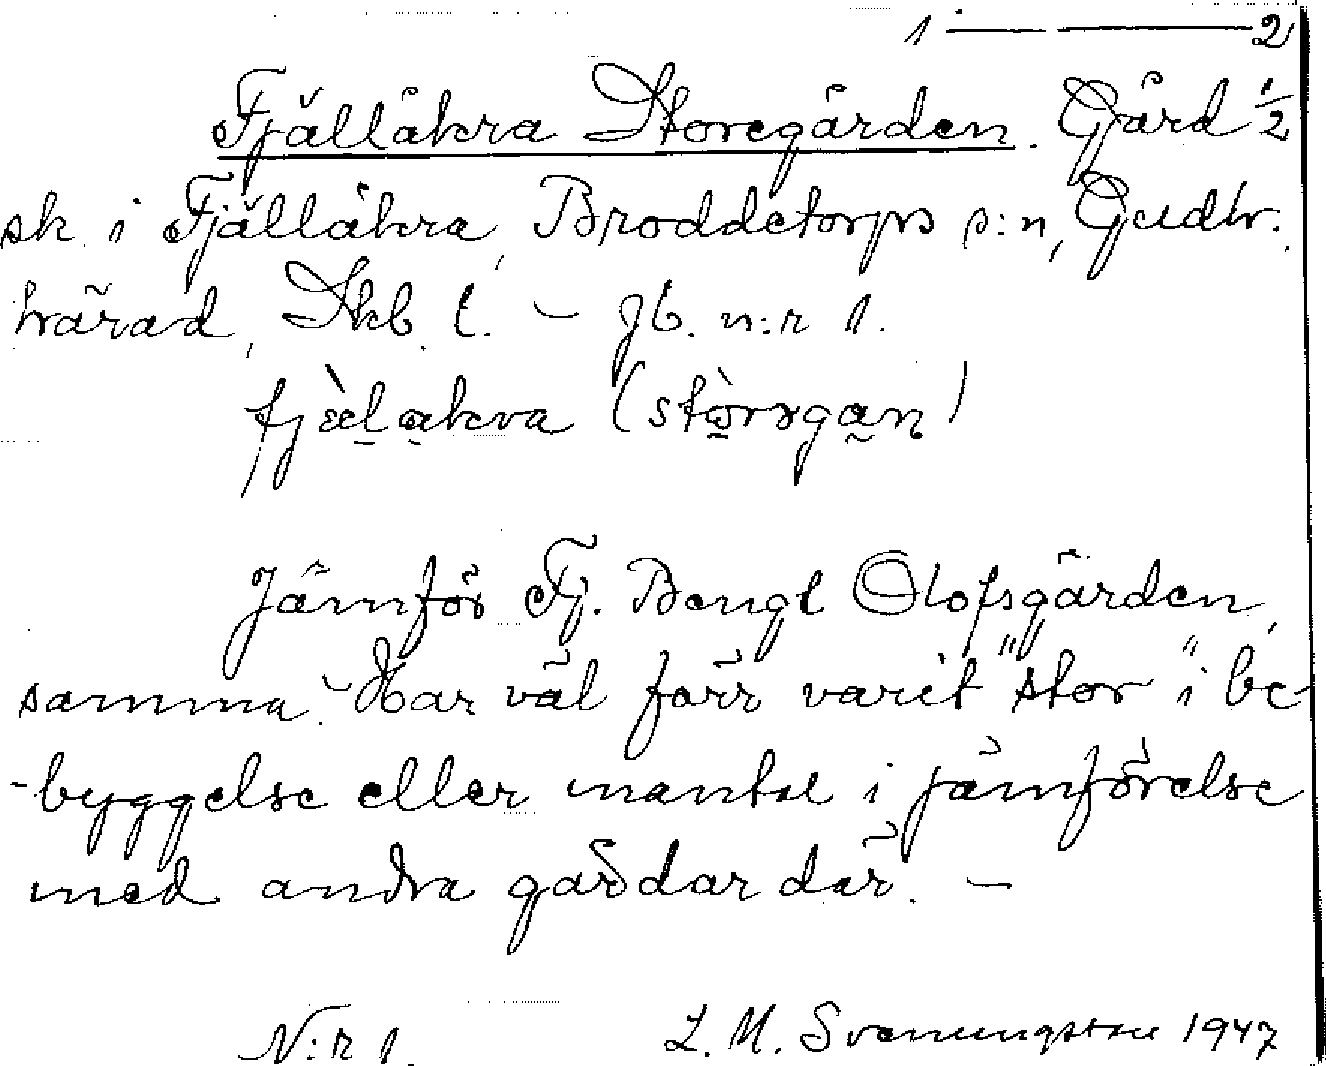 1 — — 2
Fjällåkra Storegården. Gård 1/2
sk. i Fjällåkra, Broddetorps s:n, Gudh.
härad, Skb. l. – Jb. n:r 1.
Jämför Fj. Bengt Olofsgården,
samma. – Har väl förr varit "stor" i be-
-byggelse eller mantal i jämförelse
med andra gårdar där. –
N:r 1. L. M. Svenungsson 1947